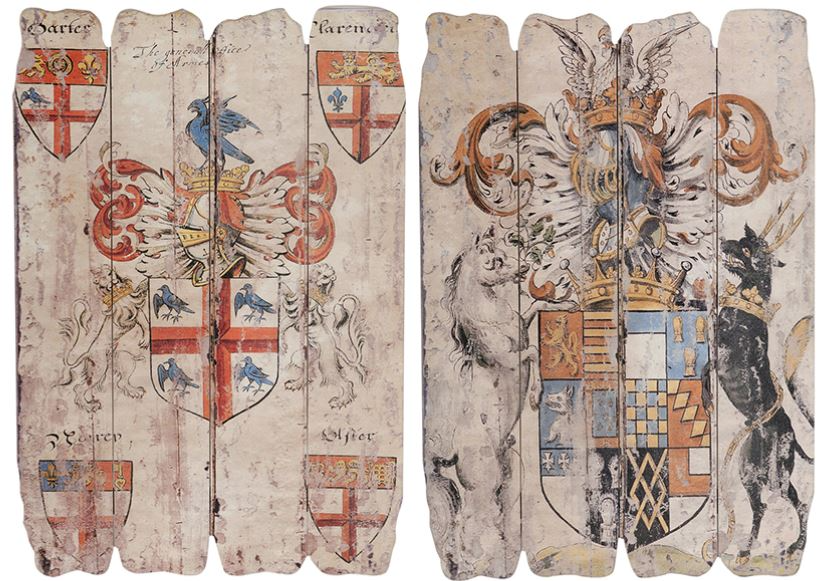 Garter
The generall office
of Armes
Norrey
Ulster